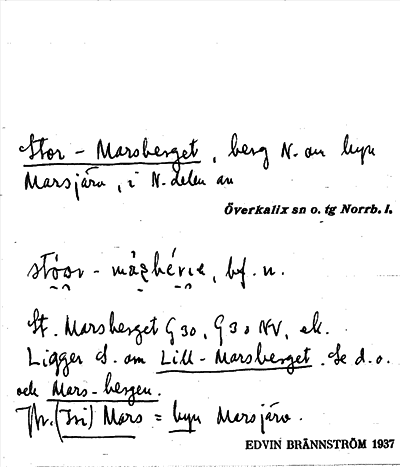 Stor - Marsberget, berg N. om byn
Marsjärv, i N. delen av
Överkalix sn o. tg Norrb. l.
bf. n.
St. Marsberget G 30, G 30 NV, ek.
Ligger S. om Lill-Marsberget. Se d.o.
och Mars-bergen.
(Tri) Mars = byn Marsjärv.
EDVIN BRÄNNSTRÖM 1937